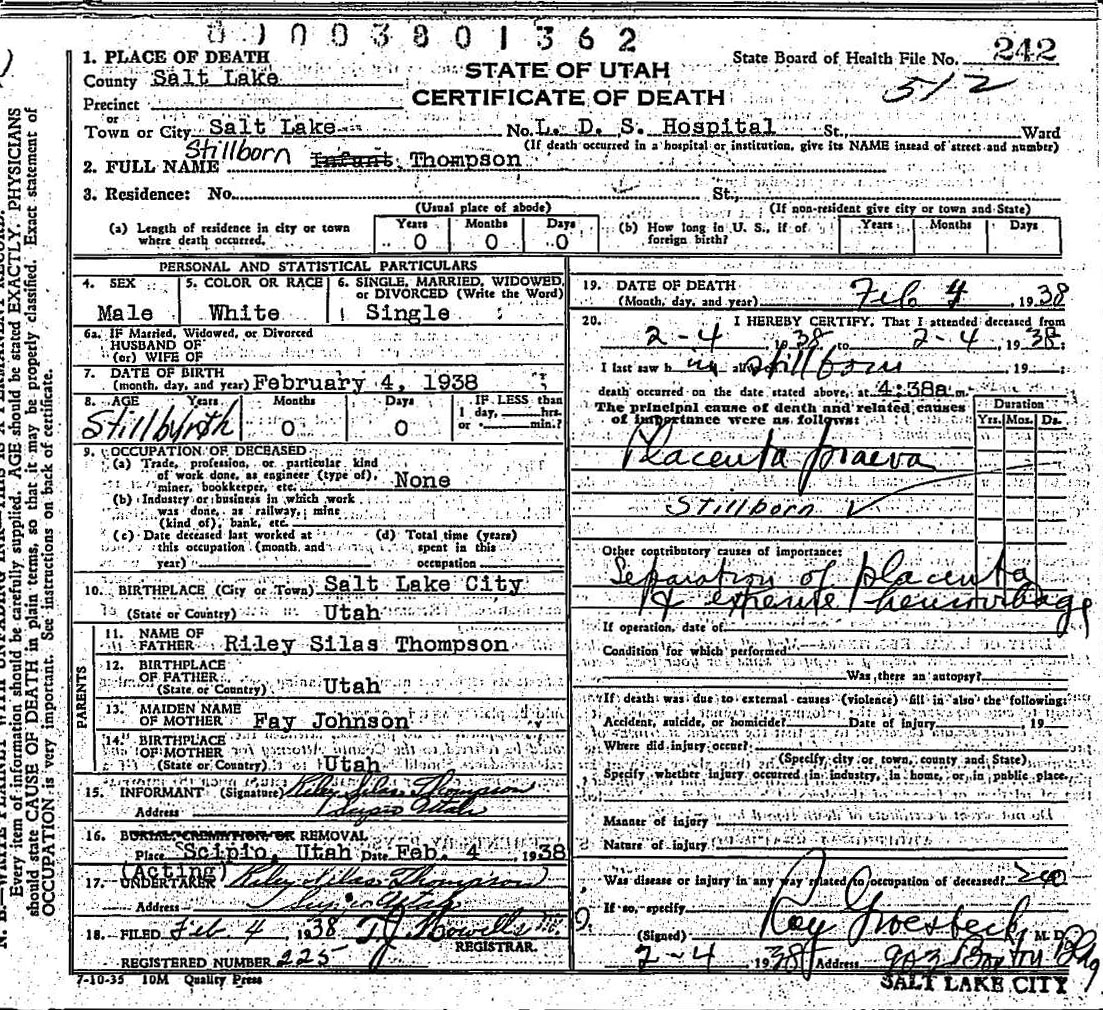 0 1 0 0 3 8 0 1 3 6 2
1. PLACE OF DEATH
County Salt Lake
STATE OF UTAH
State Board of Health File No. 242
Precinct
CERTIFICATE OF DEATH
512
or
Town or City Salt Lake No. L. D. S. Hospital St., Ward
(If death occurred in a hospital or institution, give its NAME instead of street and number)
2. FULL NAME Stillborn Infant Thompson
3. Residence: No. St.,
(Usual place of abode) (If non-resident give city or town and State)
(a) Length of residence in city or town where death occurred. Years 0 Months 0 Days 0
(b) How long in U. S., if of foreign birth? Years Months Days
PERSONAL AND STATISTICAL PARTICULARS
4. SEX Male
5. COLOR OR RACE White
6. SINGLE, MARRIED, WIDOWED, or DIVORCED (Write the Word) Single
6a. IF Married, Widowed, or Divorced
HUSBAND OF
(or) WIFE OF
7. DATE OF BIRTH
(month, day, and year) February 4, 1938
8. AGE Years Stillbyrth Months 0 Days 0 IF LESS than 1 day, hrs. or min.?
9. OCCUPATION OF DECEASED
(a) Trade, profession, or particular kind
of work done, as engineer (type of),
miner, bookkeeper, etc. None
(b) Industry or business in which work
was done, as railway, mine
(kind of), bank, etc.
(c) Date deceased last worked at
this occupation (month and
year)
(d) Total time (years)
spent in this
occupation
10. BIRTHPLACE (City or Town) Salt Lake City
(State or Country) Utah
PARENTS
11. NAME OF
FATHER Riley Silas Thompson
12. BIRTHPLACE
OF FATHER
(State or Country) Utah
13. MAIDEN NAME
OF MOTHER Fay Johnson
14. BIRTHPLACE
OF MOTHER
(State or Country) Utah
15. INFORMANT (Signature) Riley Silas Thompson
Address Scipio Utah
16. BURIAL CREMATION OR REMOVAL
Place Scipio, Utah Date Feb. 4 1938
(Acting)
17. UNDERTAKER Riley Silas Thompson
Address Scipio Utah
18. FILED Feb 4, 1938 T J Howells
REGISTRAR.
REGISTERED NUMBER 225
7-10-35 10M Quality Press
19. DATE OF DEATH
(Month, day, and year) Feb 4, 1938
20. I HEREBY CERTIFY, That I attended deceased from
2-4 1938 to 2-4 1938;
I last saw h im alive on stillborn 19
death occurred on the date stated above, at 4:38a m.
The principal cause of death and related causes
of importance were as follows:
Duration
Yrs. Mos. Ds.
Placenta praeva
Stillborn ✓
Other contributory causes of importance:
Separation of placenta
& extense hemorrhage
If operation, date of
Condition for which performed
Was there an autopsy?
If death was due to external causes (violence) fill in also the following:
Accident, suicide, or homicide? Date of injury 19
Where did injury occur?
(Specify city or town, county and State)
Specify whether injury occurred in industry, in home, or in public place.
Manner of injury
Nature of injury
Was disease or injury in any way related to occupation of deceased? no
If so, specify
(Signed) Roy Groesbeck, M. D.
2-4 1938 Address Boston Bldg
SALT LAKE CITY
Every item of information should be carefully supplied. AGE should be stated EXACTLY. PHYSICIANS
should state CAUSE OF DEATH in plain terms, so that it may be properly classified. Exact statement of
OCCUPATION is very important. See instructions on back of certificate.